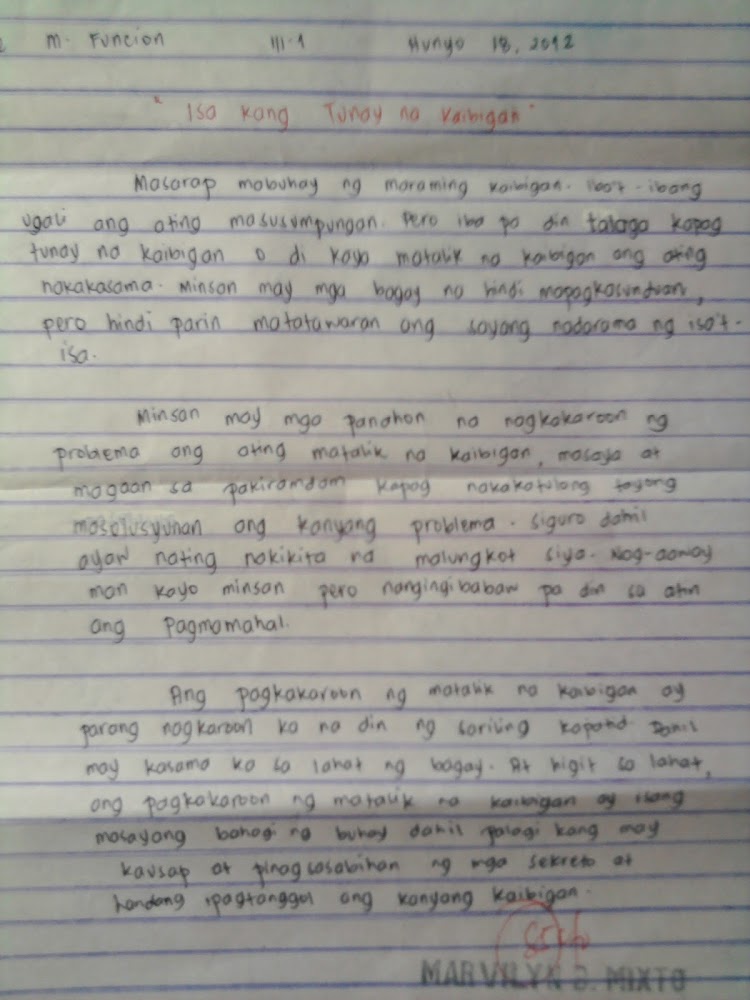 M. Funcion III-1 Hunyo 18, 2012
" Isa kang Tunay na Kaibigan "
Masarap mabuhay ng maraming kaibigan. Iba't-ibang
ugali ang ating masusumpungan. Pero iba pa din talaga kapag
tunay na kaibigan o di kaya matalik na kaibigan ang ating
nakakasama. Minsan may mga bagay na hindi mapagkasunduan,
pero hindi parin matatawaran ang sayang nadarama ng isa't-
isa.
Minsan may mga panahon na nagkakaroon ng
problema ang ating matalik na kaibigan, masaya at
magaan sa pakiramdam kapag nakakatulong tayong
masolusyunan ang kanyang problema. siguro dahil
ayaw nating nakikita na malungkot siya. Nag-aaway
man kayo minsan pero nangingibabaw pa din sa atin
ang Pagmamahal.
Ang pagkakaroon ng matalik na kaibigan ay
parang nagkaroon ka na din ng sariling kapatid Dahil
may kasama ka sa lahat ng bagay. At higit sa lahat,
ang pagkakaroon ng matalik na kaibigan ay isang
masayang bahagi ng buhay dahil palagi kang may
kausap at pinagsasabihan ng mga sekreto at
handang ipagtanggol ang kanyang kaibigan.
MARVILYN MIXTO